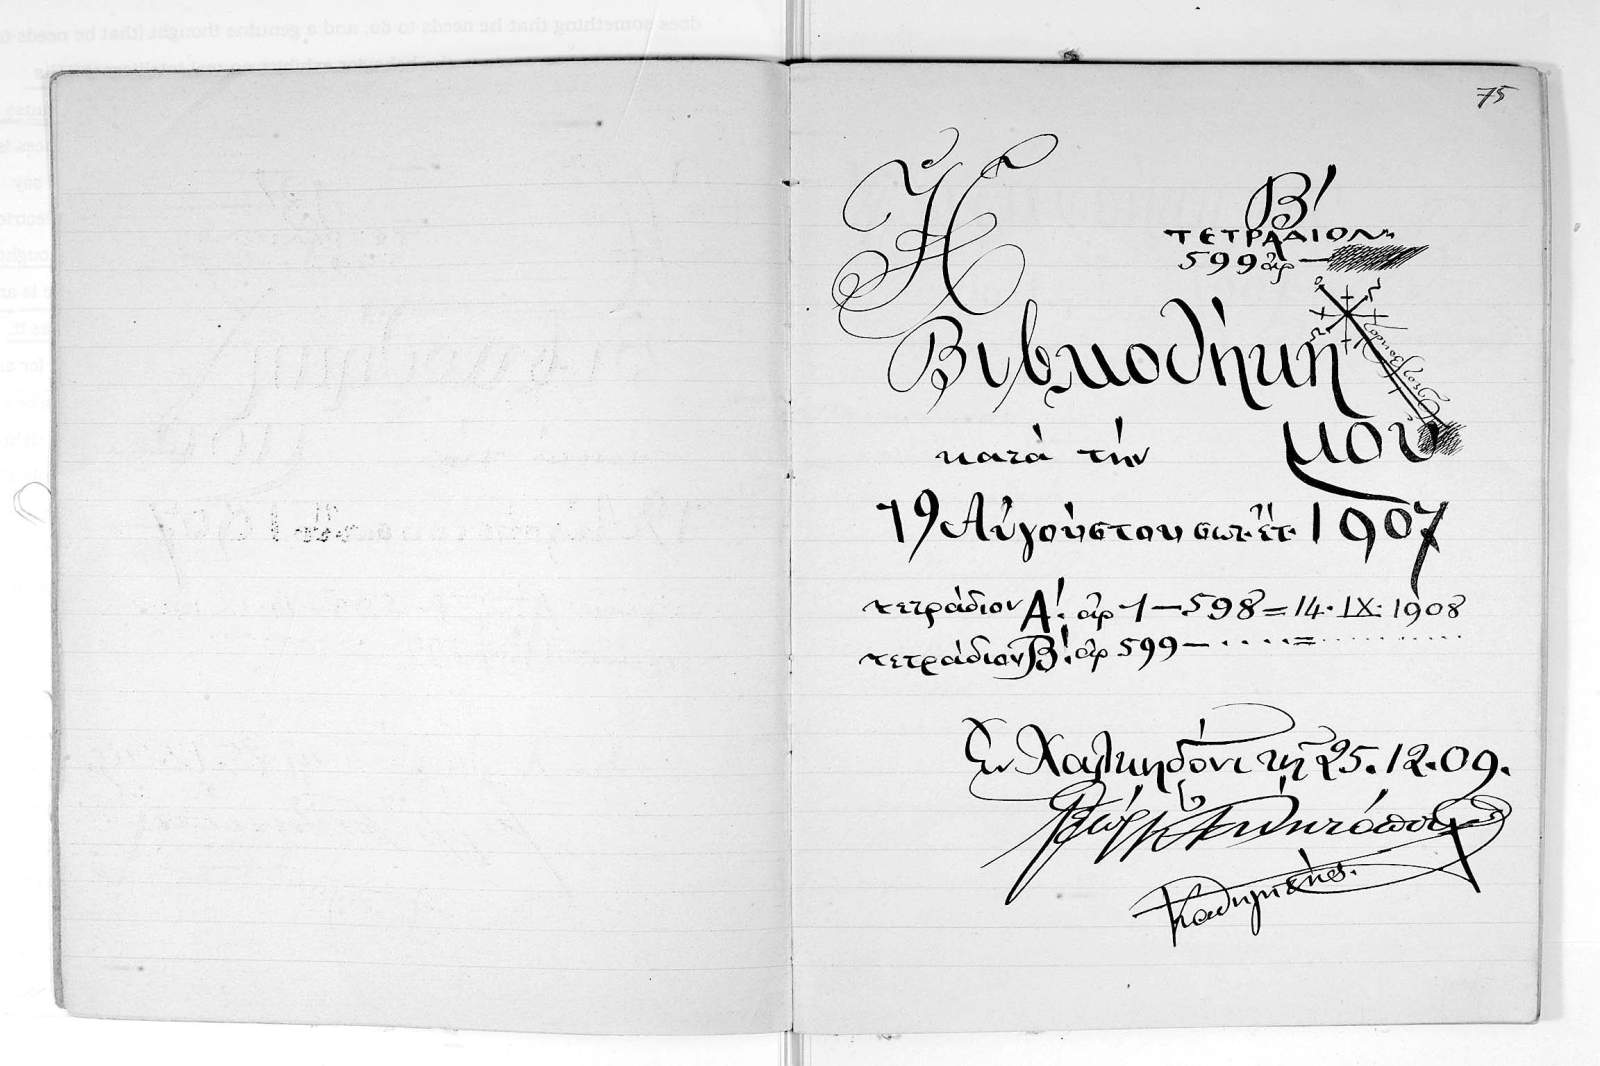 75
Ἡ
Β′
ΤΕΤΡΑΔΙΟΝ
599 ἀρ —
Βιβλιοθήκη
μου
κατὰ τὴν
19 Αὐγούστου σωτ. ἔτ. 1907
τετράδιον Α′. ἀρ 1 — 598 = 14. IX. 1908
τετράδιον Β′. ἀρ 599 — . . . . = . . . . . . . . .
Ἐν Χαλκηδόνι τῇ 25. 12. 09.
Καθηγητής.